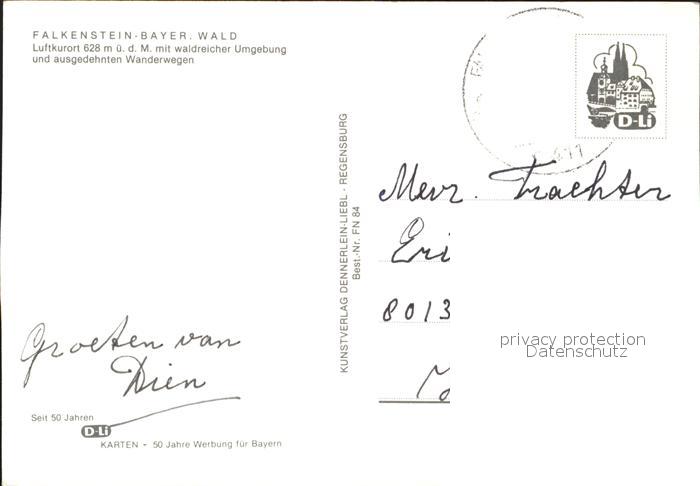 FALKENSTEIN-BAYER. WALD
Luftkurort 628 m ü. d. M. mit waldreicher Umgebung
und ausgedehnten Wanderwegen
D-Li
KUNSTVERLAG DENNERLEIN-LIEBL · REGENSBURG
Best.-Nr. FN 84
Mevr. Trachter
Eri
8013
privacy protection
Datenschutz
Groeten van
Dien
Seit 50 Jahren
D-Li
KARTEN - 50 Jahre Werbung für Bayern